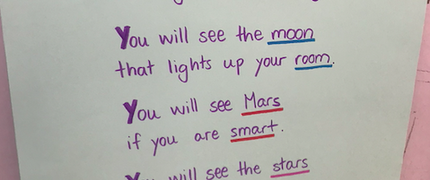 You will see the moon
that lights up your room.
You will see Mars
if you are smart.
You will see the stars